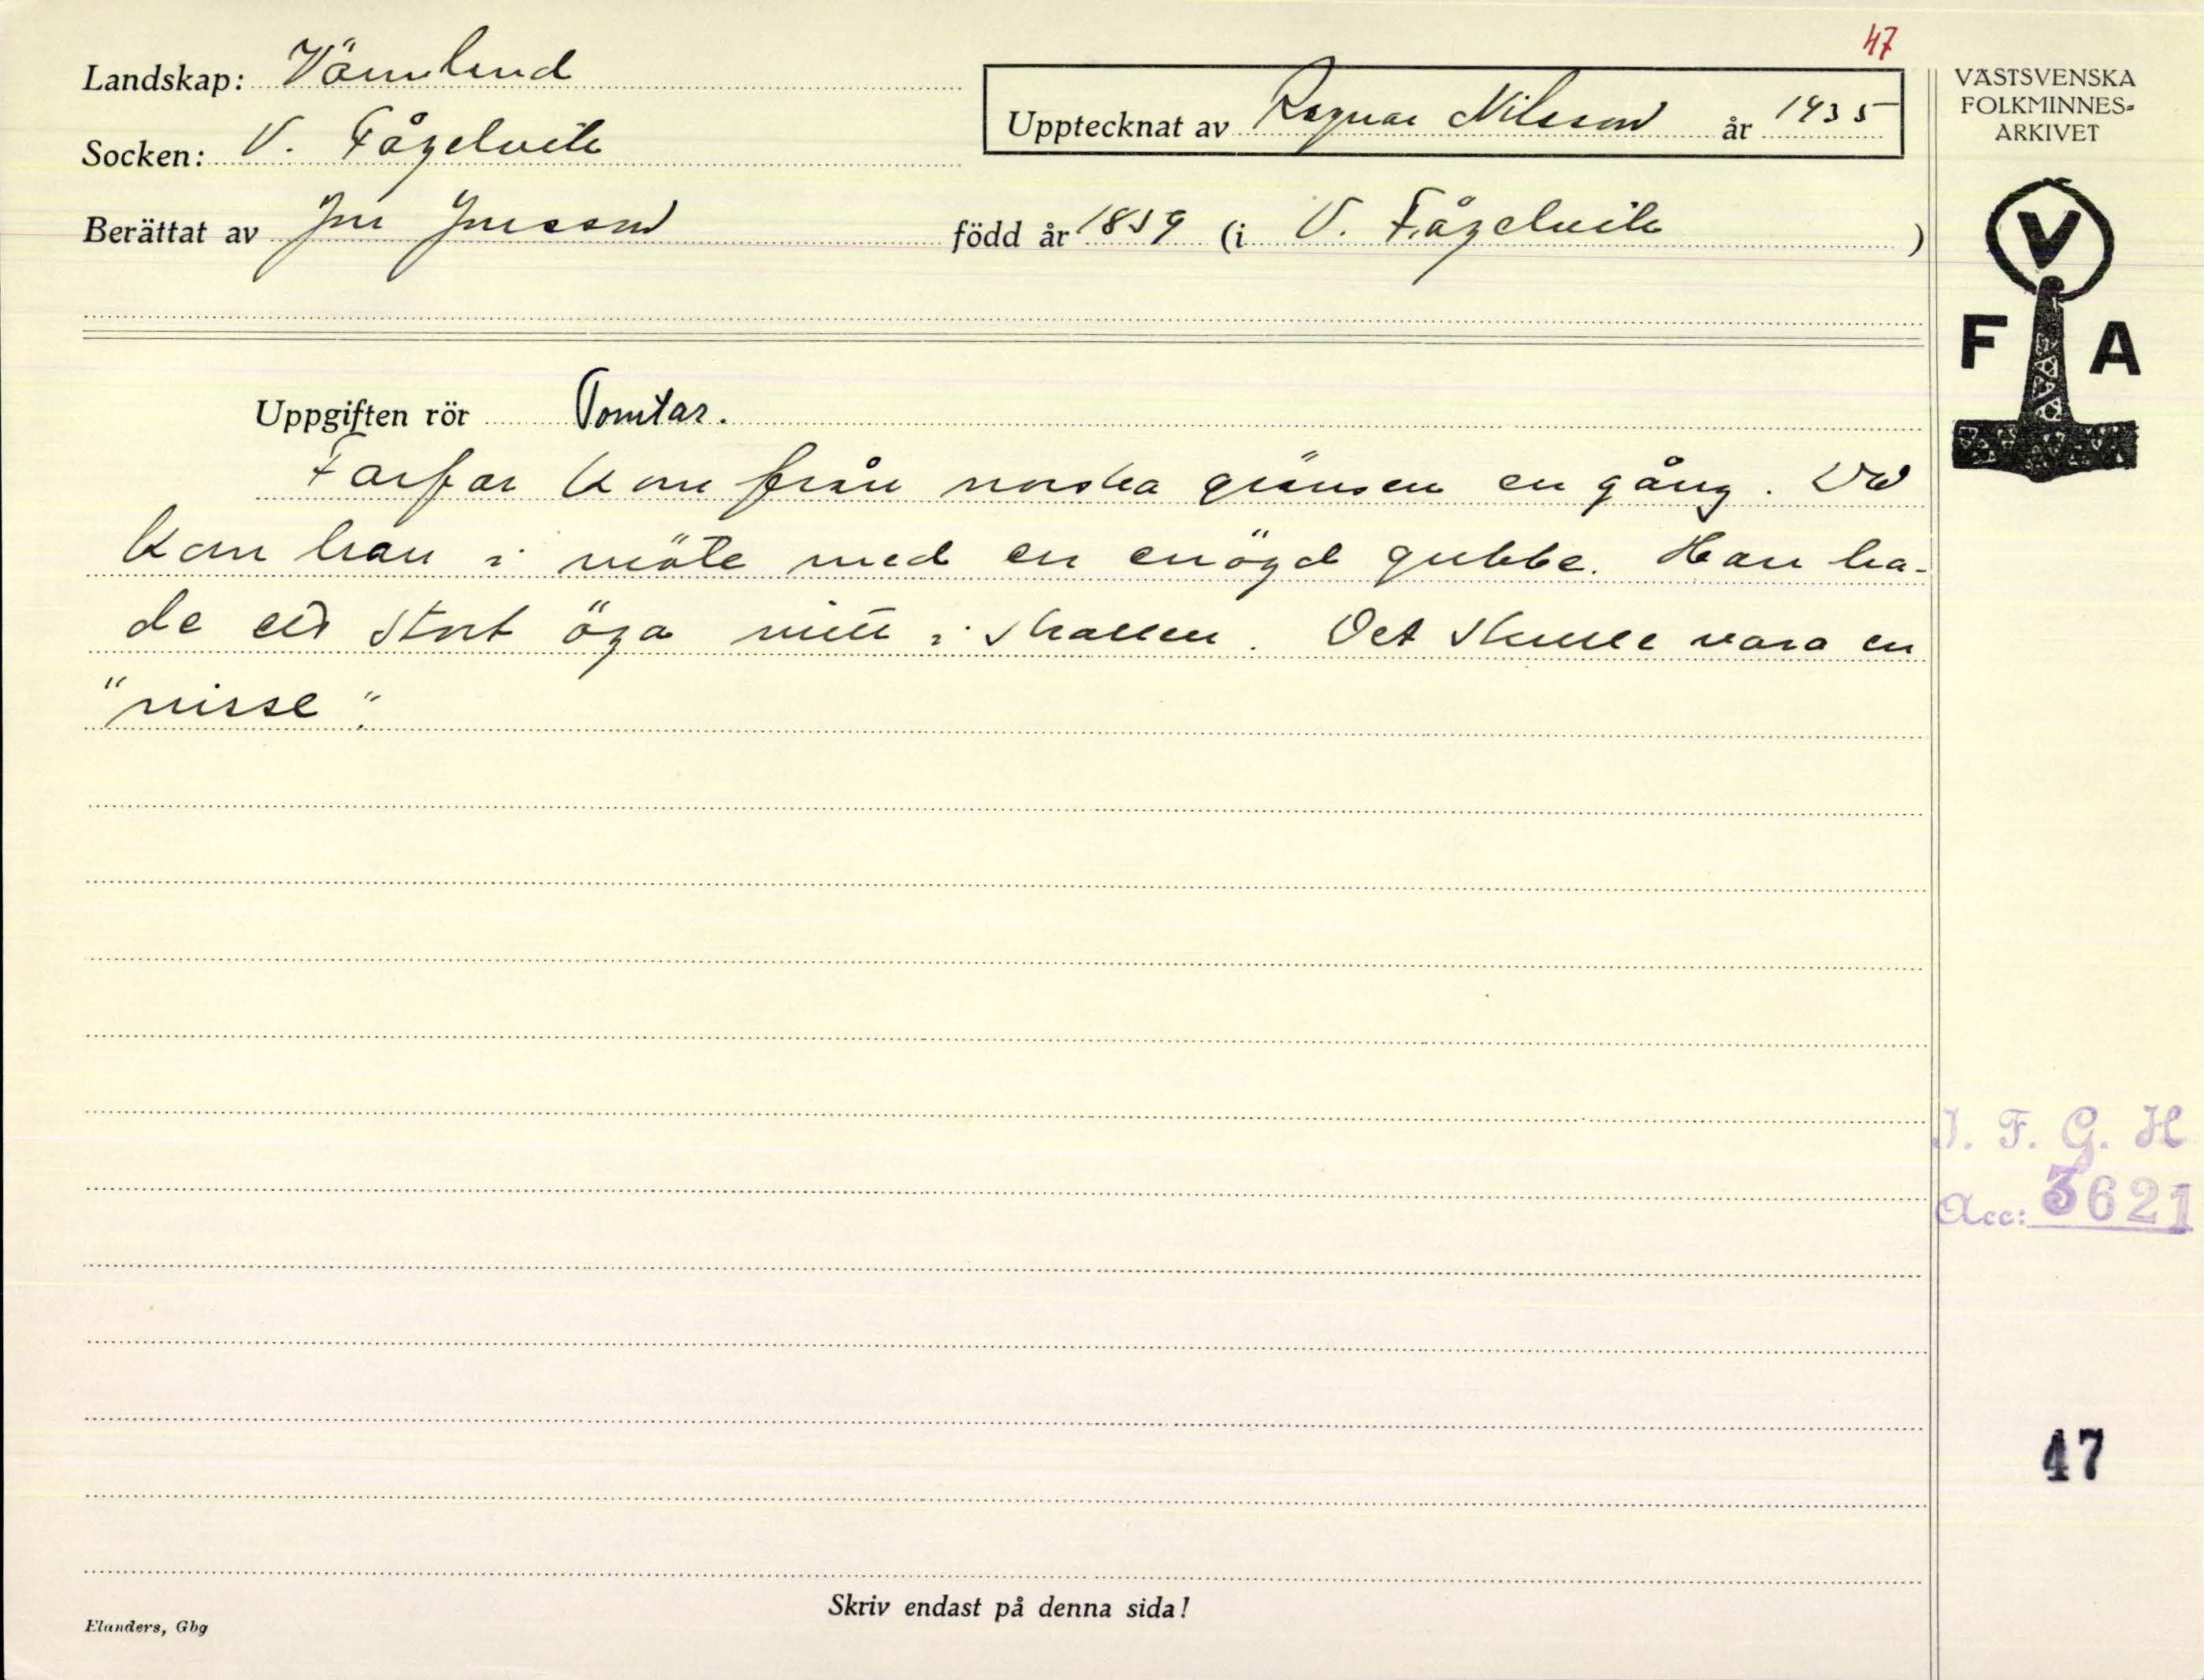 47
Landskap: Värmland
Socken: V. Fågelvik
Upptecknat av Ragnar Nilsson år 1935
Berättat av Jon Jonsson född år 1859 (i V. Fågelvik )
VÄSTSVENSKA
FOLKMINNES-
ARKIVET
V
F A
Uppgiften rör Tomtar.
Farfar kom från norska gränsen en gång. Då
kom han i möte med en enögd gubbe. Han ha-
de ett stort öga mitt i skallen. Det skulle vara en
"nisse".
I. F. G. H
Acc: 3621
47
Skriv endast på denna sida!
Elanders, Gbg